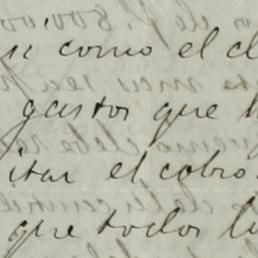 si como el cl
gastos que h
itar el cobro.
que todos l